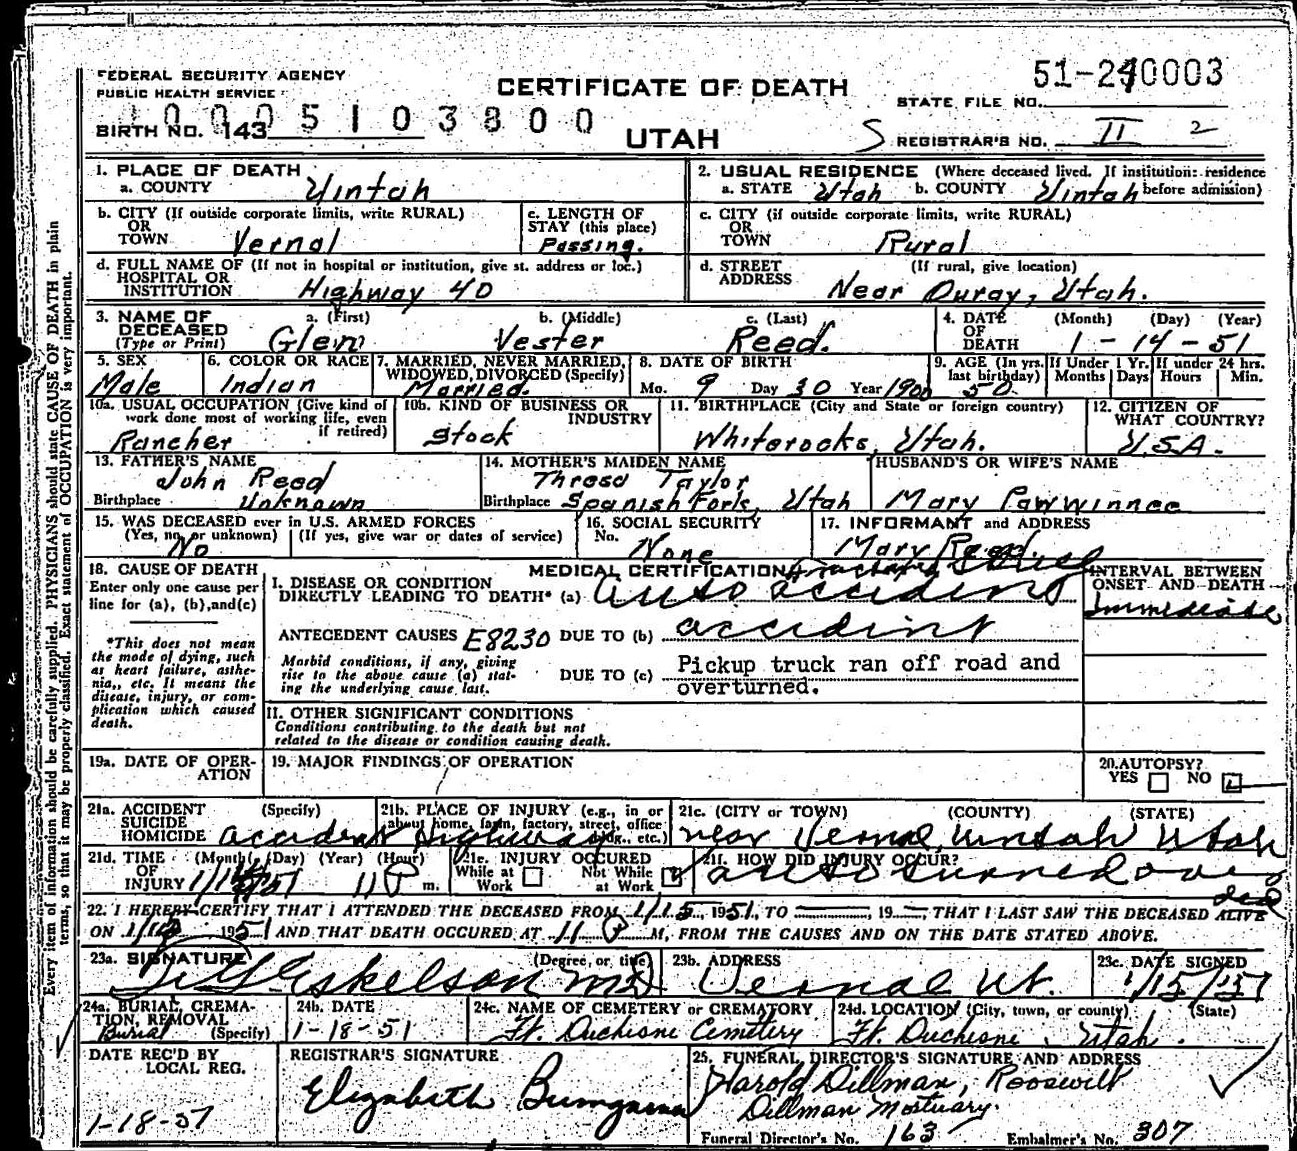 FEDERAL SECURITY AGENCY
PUBLIC HEALTH SERVICE
CERTIFICATE OF DEATH
STATE FILE NO.
51-240003
10005103800
BIRTH NO. 143
UTAH
REGISTRAR'S NO. II 2
1. PLACE OF DEATH
a. COUNTY Uintah
2. USUAL RESIDENCE (Where deceased lived. If institution: residence before admission)
a. STATE Utah b. COUNTY Uintah
b. CITY (If outside corporate limits, write RURAL)
OR
TOWN Vernal
c. LENGTH OF STAY (this place)
Passing.
c. CITY (if outside corporate limits, write RURAL)
OR
TOWN Rural
d. FULL NAME OF (If not in hospital or institution, give st. address or loc.)
HOSPITAL OR
INSTITUTION Highway 40
d. STREET ADDRESS (If rural, give location)
Near Ouray, Utah.
3. NAME OF DECEASED (Type or Print)
a. (First) b. (Middle) c. (Last)
Glen Vester Reed.
4. DATE OF DEATH (Month) (Day) (Year)
1-14-51
5. SEX
Male
6. COLOR OR RACE
Indian
7. MARRIED, NEVER MARRIED, WIDOWED, DIVORCED (Specify)
Married.
8. DATE OF BIRTH
Mo. 9 Day 30 Year 1900
9. AGE (In yrs. last birthday)
50
If Under 1 Yr. Months Days
If under 24 hrs. Hours Min.
10a. USUAL OCCUPATION (Give kind of work done most of working life, even if retired)
Rancher
10b. KIND OF BUSINESS OR INDUSTRY
Stock
11. BIRTHPLACE (City and State or foreign country)
Whiterocks, Utah.
12. CITIZEN OF WHAT COUNTRY?
U.S.A.
13. FATHER'S NAME
John Reed
Birthplace Unknown
14. MOTHER'S MAIDEN NAME
Thresa Taylor
Birthplace Spanish Fork, Utah
HUSBAND'S OR WIFE'S NAME
Mary Pawwinnee
15. WAS DECEASED ever in U.S. ARMED FORCES
(Yes, no, or unknown) (If yes, give war or dates of service)
No
16. SOCIAL SECURITY No.
None
17. INFORMANT and ADDRESS
Mary Reed.
18. CAUSE OF DEATH
Enter only one cause per line for (a), (b), and (c)
*This does not mean the mode of dying, such as heart failure, asthenia, etc. It means the disease, injury, or complication which caused death.
MEDICAL CERTIFICATION
Fractured Skull
I. DISEASE OR CONDITION DIRECTLY LEADING TO DEATH* (a) auto accident
INTERVAL BETWEEN ONSET AND DEATH
Immediate
ANTECEDENT CAUSES E8230 DUE TO (b) accident
Morbid conditions, if any, giving rise to the above cause (a) stating the underlying cause last.
DUE TO (c) Pickup truck ran off road and
overturned.
II. OTHER SIGNIFICANT CONDITIONS
Conditions contributing to the death but not related to the disease or condition causing death.
19a. DATE OF OPERATION
19. MAJOR FINDINGS OF OPERATION
20. AUTOPSY?
YES NO
21a. ACCIDENT SUICIDE HOMICIDE (Specify)
accident
21b. PLACE OF INJURY (e.g., in or about home, farm, factory, street, office bldg., etc.)
Highway
21c. (CITY or TOWN) (COUNTY) (STATE)
near Vernal, Uintah Utah
21d. TIME OF INJURY (Month) (Day) (Year) (Hour)
1/14/51 11 P m.
21e. INJURY OCCURED
While at Work Not While at Work
21f. HOW DID INJURY OCCUR?
auto turned over
22. I HEREBY CERTIFY THAT I ATTENDED THE DECEASED FROM 1/15, 1951, TO , 19 , THAT I LAST SAW THE DECEASED ALIVE
ON 1951 AND THAT DEATH OCCURED AT 11 P M, FROM THE CAUSES AND ON THE DATE STATED ABOVE.
23a. SIGNATURE (Degree, or title)
Eskelson MD
23b. ADDRESS
Vernal Ut.
23c. DATE SIGNED
1/15/51
24a. BURIAL, CREMATION, REMOVAL (Specify)
Burial
24b. DATE
1-18-51
24c. NAME OF CEMETERY or CREMATORY
Ft. Duchesne Cemetery
24d. LOCATION (City, town, or county) (State)
Ft. Duchesne, Utah.
DATE REC'D BY LOCAL REG.
1-18-51
REGISTRAR'S SIGNATURE
Elizabeth
25. FUNERAL DIRECTOR'S SIGNATURE AND ADDRESS
Harold Dillman, Roosevelt
Dillman Mortuary.
Funeral Director's No. 163 Embalmer's No. 307
Every item of information should be carefully supplied. PHYSICIANS should state CAUSE OF DEATH in plain
terms, so that it may be properly classified. Exact statement of OCCUPATION is very important.